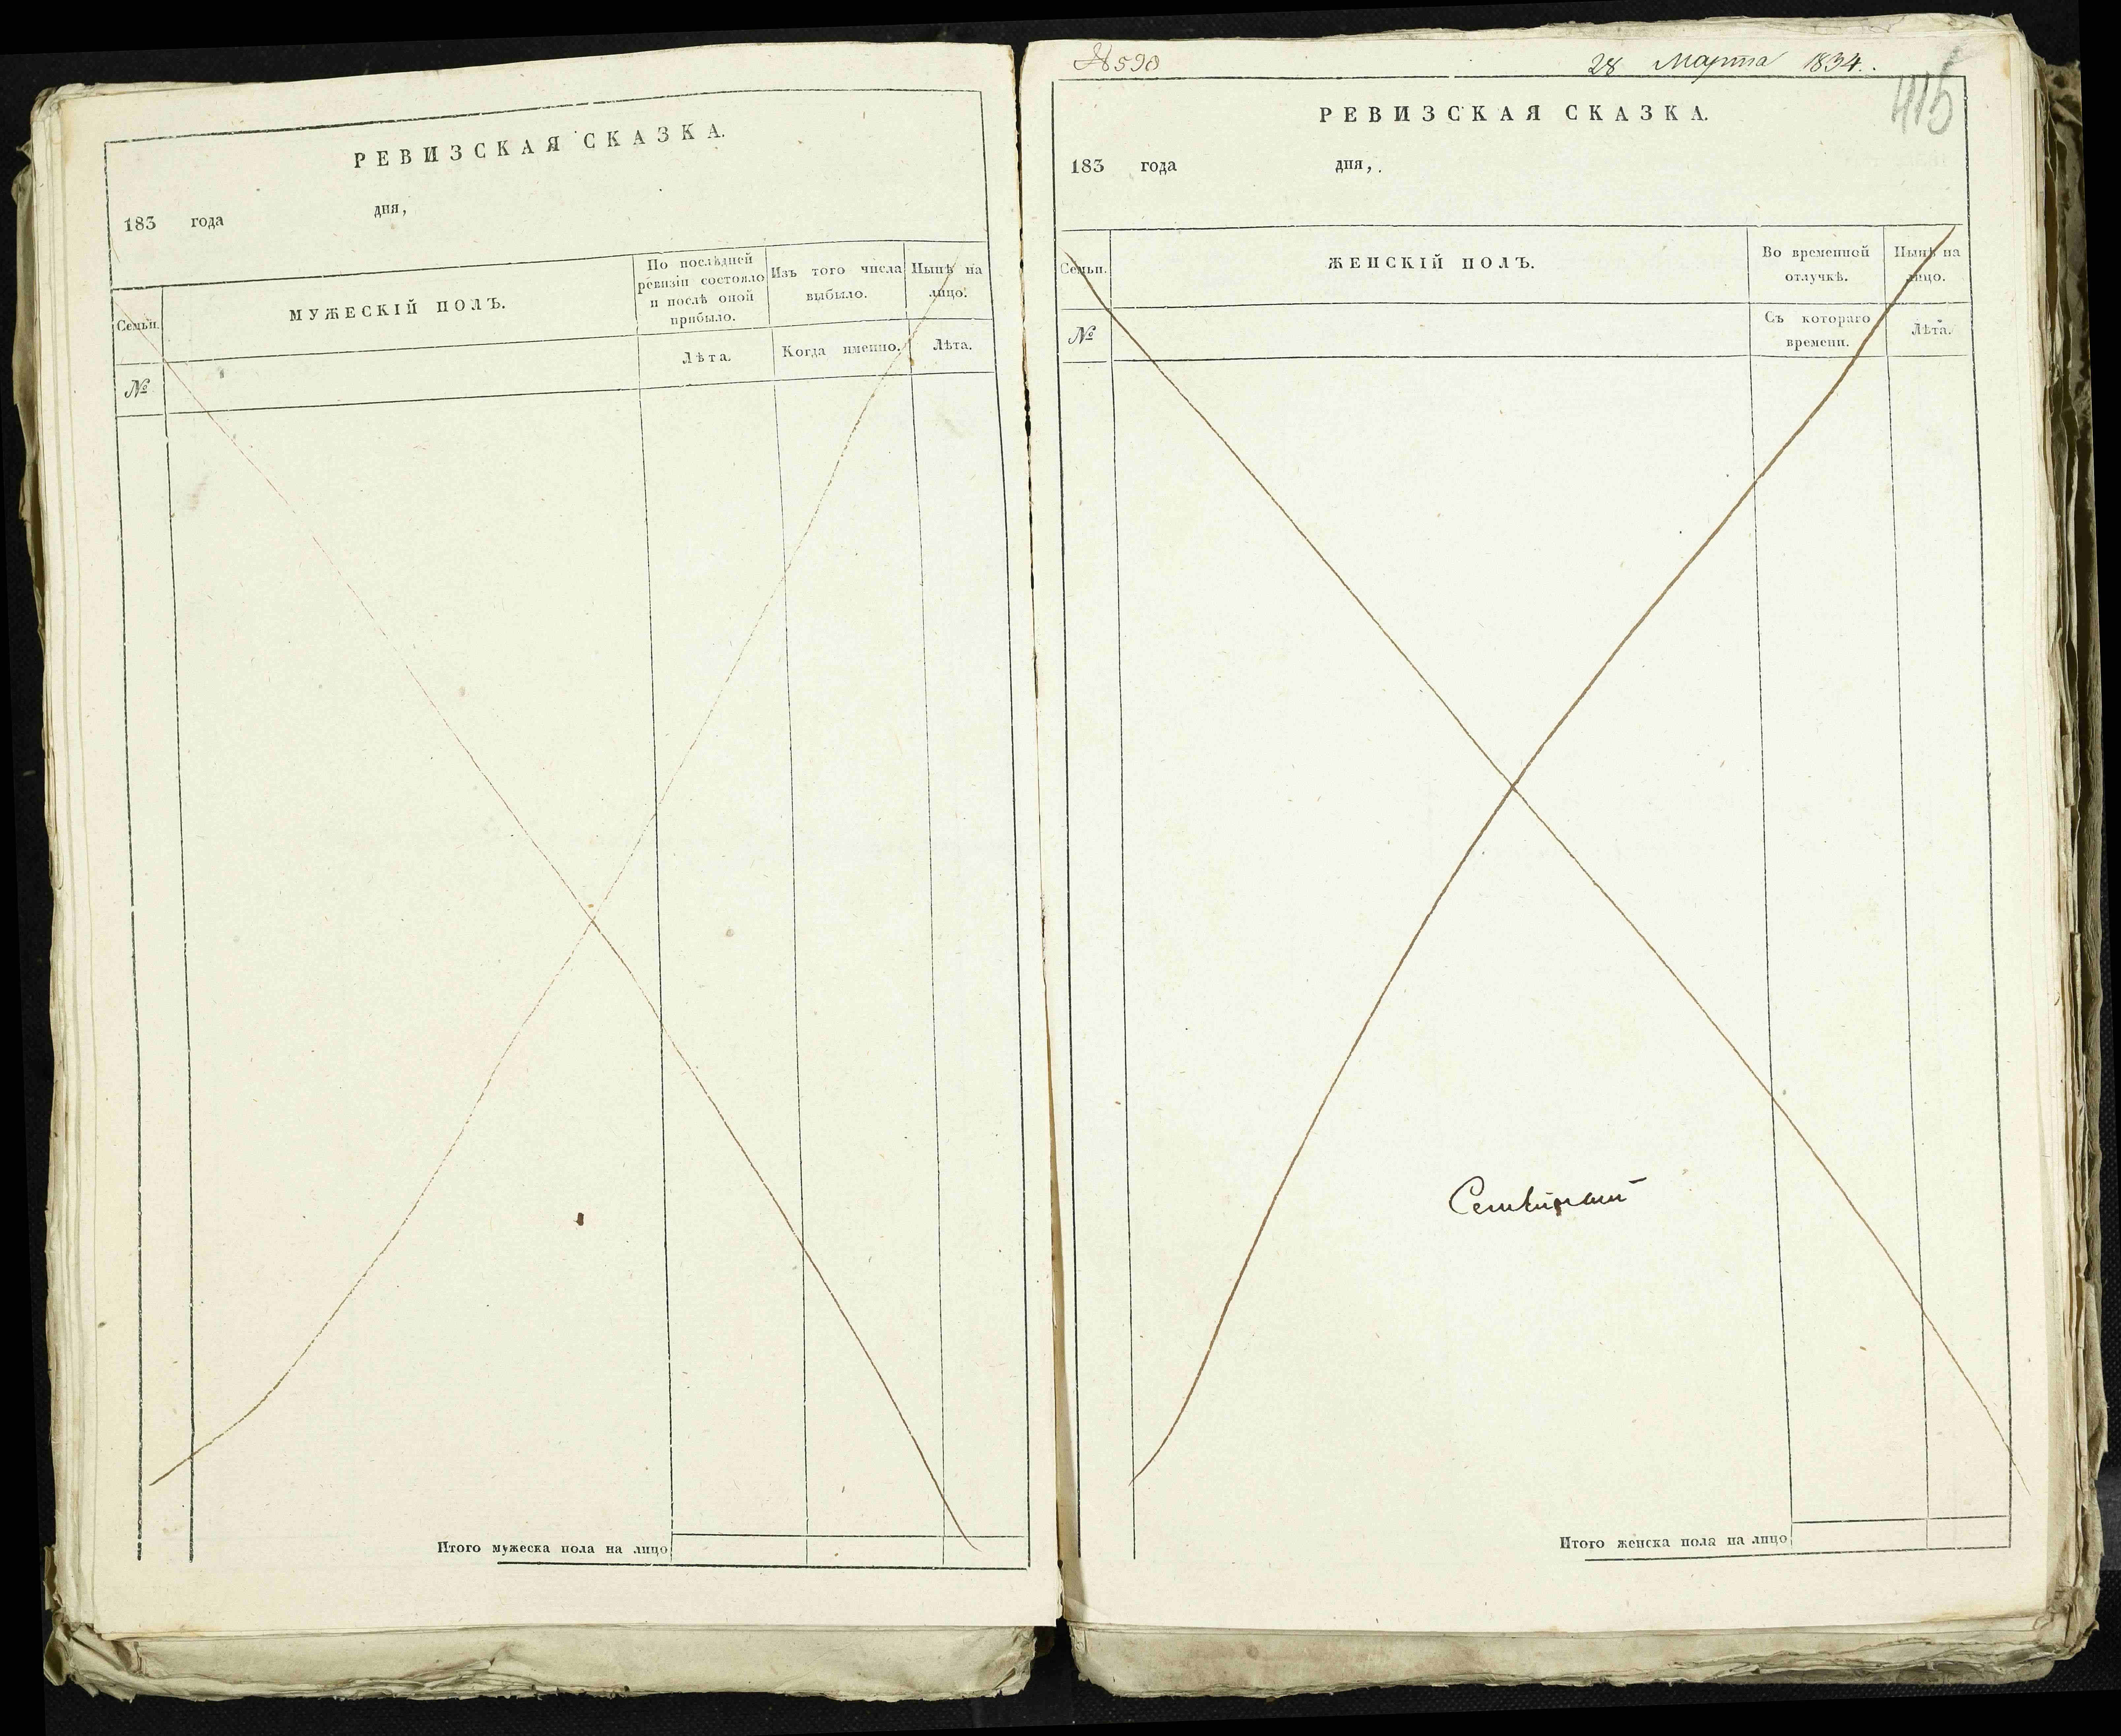 РЕВИЗСКАЯ СКАЗКА.
183 года дня,
Семьи.
МУЖЕСКІЙ ПОЛЪ.
По послѣдней
ревизіи состояло
и послѣ оной
прибыло.
Изъ того числа
выбыло.
Нынѣ на
лицо.
№
Лѣта.
Когда именно.
Лѣта.
Итого мужеска пола на лицо
№ 590
28 Марта 1834.
415
РЕВИЗСКАЯ СКАЗКА.
183 года дня,
Семьи.
ЖЕНСКІЙ ПОЛЪ.
Во временной
отлучкѣ.
Нынѣ на
лицо.
№
Съ котораго
времени.
Лѣта.
Итого женска пола на лицо